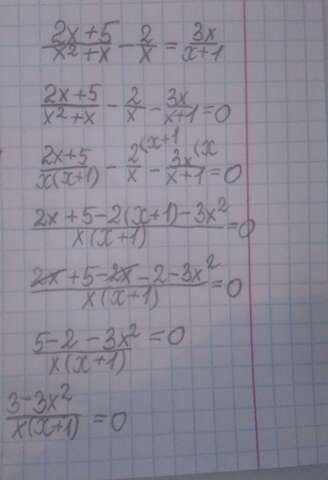 (2x+5)/(x²+x) - 2/x = 3x/(x+1)
(2x+5)/(x²+x) - 2/x - 3x/(x+1) = 0
(2x+5)/(x(x+1)) - 2/x (x+1 - 3x/(x+1) (x = 0
(2x+5-2(x+1)-3x²)/(x(x+1)) = 0
(2x+5-2x-2-3x²)/(x(x+1)) = 0
(5-2-3x²)/(x(x+1)) = 0
(3-3x²)/(x(x+1)) = 0